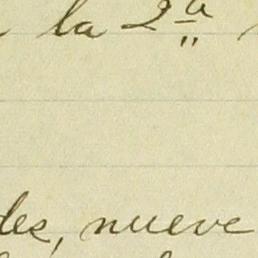 la 2ª
des, nueve